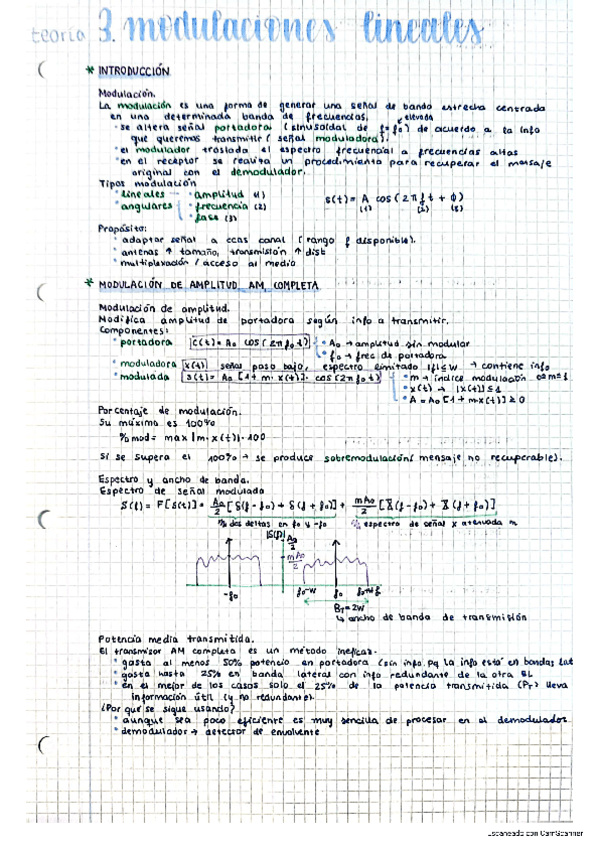 teoría 3. modulaciones lineales
* INTRODUCCIÓN
Modulación.
La modulación es una forma de generar una señal de banda estrecha centrada
en una determinada banda de frecuencias.
elevada
• se altera señal portadora (sinusoidal de f=f₀) de acuerdo a la info
que queremos transmitir (señal moduladora).
• el modulador traslada el espectro frecuencial a frecuencias altas
• en el receptor se realiza un procedimiento para recuperar el mensaje
original con el demodulador.
Tipos modulación
• lineales → • amplitud (1)
s(t) = A cos(2πft + φ)
• angulares • frecuencia (2)
(1) (2) (3)
• fase (3)
Propósito:
• adaptar señal a ccas canal (rango f disponible).
• antenas ↑ tamaño, transmisión ↑ dist
• multiplexación / acceso al medio
* MODULACIÓN DE AMPLITUD AM COMPLETA
Modulación de amplitud.
Modifica amplitud de portadora según info a transmitir.
Componentes:
• portadora c(t) = A₀ cos(2πf₀t) • A₀ → amplitud sin modular
• f₀ → frec de portadora
• moduladora x(t) señal paso bajo, espectro limitado |f|≤W → contiene info
• modulada s(t) = A₀ [1 + m·x(t)]· cos(2πf₀t) • m → índice modulación 0≤m≤1
• x(t) → |x(t)|≤1
• A = A₀[1 + m·x(t)] ≥ 0
Porcentaje de modulación.
Su máximo es 100%
% mod = max |m·x(t)|·100
Si se supera el 100% → se produce sobremodulación (mensaje no recuperable).
Espectro y ancho de banda.
Espectro de señal modulada
S(f) = F[s(t)] = A₀/2 [δ(f-f₀) + δ(f+f₀)] + mA₀/2 [X(f-f₀) + X(f+f₀)]
dos deltas en f₀ y -f₀ espectro de señal x atenuada m
|S(f)|
A₀/2
mA₀/2
-f₀ f₀-W f₀ f₀+W f
B_T = 2W
↳ ancho de banda de transmisión
Potencia media transmitida.
El transmisor AM completa es un método ineficaz.
• gasta al menos 50% potencia en portadora (sin info, pq la info está en bandas lat
• gasta hasta 25% en banda lateras con info redundante de la otra BL
• en el mejor de los casos solo el 25% de la potencia transmitida (P_T) lleva
información útil (y no redundante).
¿Por qué se sigue usando?
• aunque sea poco eficiente es muy sencilla de procesar en el demodulador
• demodulador → detector de envolvente
Escaneado con CamScanner